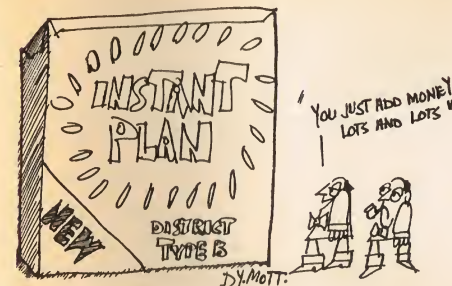 INSTANT
PLAN
NEW
DISTRICT
TYPE B
DY.MOTT.
"YOU JUST ADD MONEY
LOTS AND LOTS